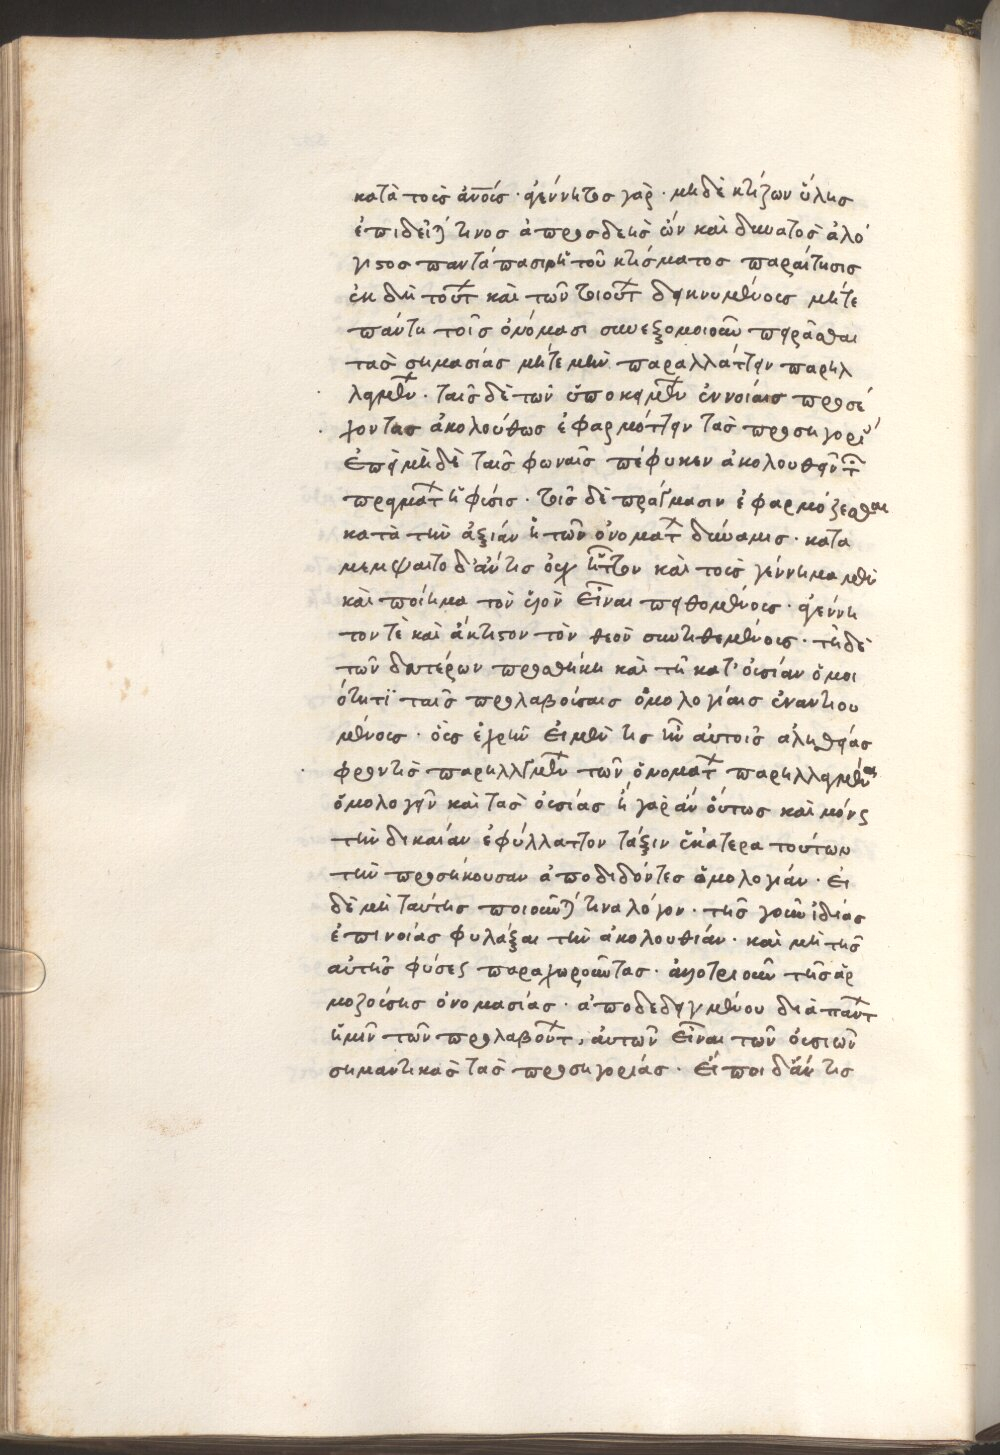 κατὰ τοὺς ἀν̅ους · ἀγέννητος γὰρ · μηδὲ κτίζων ὕλης
ἐπιδεῖσθ τινος ἀπροσδεὴς ὢν καὶ δυνατὸς ἀλό
γιστος παντάπασιν ἡ τοῦ κτίσματος παραίτησις
ἐκ δὴ τούτ καὶ τῶν τοιούτ δεικνυμένους μήτε
πάντη τοῖς ὀνόμασι συνεξομοιοῦν πειρᾶσθαι
τὰς σημασίας μήτε μὴν παραλλάττειν παρηλ
λαγμέν · ταῖς δὲ τῶν ὑποκειμέν ἐννοίαις προσέ
χοντας ἀκολούθως ἐφαρμόττειν τὰς προσηγορί
ἐπεὶ μηδὲ ταῖς φωναῖς πέφυκεν ἀκολουθεῖν τ
πραγμάτ ἡ φύσις · τοῖς δὲ πράγμασιν ἐφαρμόζεσθαι
κατὰ τὴν ἀξίαν ἡ τῶν ὀνομάτ δύναμις · κατα
μεμψαιτο δ' ἄν τις οὐχ ἧττον καὶ τοὺς γέννημα μὲν
καὶ ποίημα τὸν υἱὸν εἶναι πειθομένους · ἀγέννη
τον τὲ καὶ ἄκτιστον τὸν θεὸν συντιθεμένους · τῇ δὲ
τῶν δευτέρων προσθήκῃ καὶ τῇ κατ' οὐσίαν ὅμοι
ότητι ταῖς προλαβούσαις ὁμολογίαις ἐναντιου
μένους · οὓς ἐχρῆν εἰ μέν τις ἦν αὐτοῖς ἀληθείας
φροντὶς παρηλλγμέν τῶν ὀνομάτ παρηλλαγμένας
ὁμολογεῖν καὶ τὰς οὐσίας ἢ γὰρ ἂν οὕτως καὶ μόνς
τὴν δικαίαν ἐφύλλαττον τάξιν ἑκάτερα τούτων
τὴν προσήκουσαν ἀποδιδόντες ὁμολογίαν · εἰ
δὲ μὴ ταύτης ποιοῦντ τινα λόγον · τῆς γοῦν ἰδίας
ἐπινοίας φυλάξαι τὴν ἀκολουθίαν · καὶ μὴ τῆς
αὐτῆς φύσες παραχωροῦντας · ἀλλοτριοῦν τῆς ἁρ
μοζούσης ὀνομασίας · ἀποδεδειγμένου διὰ πάντ
ἡμῖν τῶν προλαβόντ, αὐτῶν εἶναι τῶν οὐσιῶν
σημαντικὰς τὰς προσηγορίας · εἴποι δ' ἄν τις